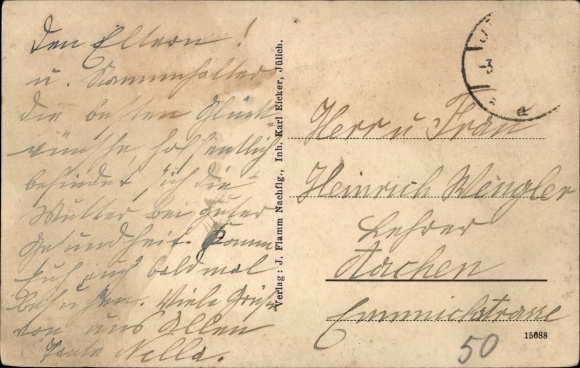 Den Eltern!
u. Stammhalter
die besten Glück
wünsche, hoffentlich
befindet sich die
Mutter bei guter
Gesundheit. Komm
Euch auch baldmal
besuchen. Viele Grüße
von uns Allen
Tante Nella.
Verlag: J. Flamm Nachflg., Inh. Karl Eicker, Jülich.
Herr u Frau
Heinrich Wengler
Lehrer
Aachen
Emmichstrasse
15688
50